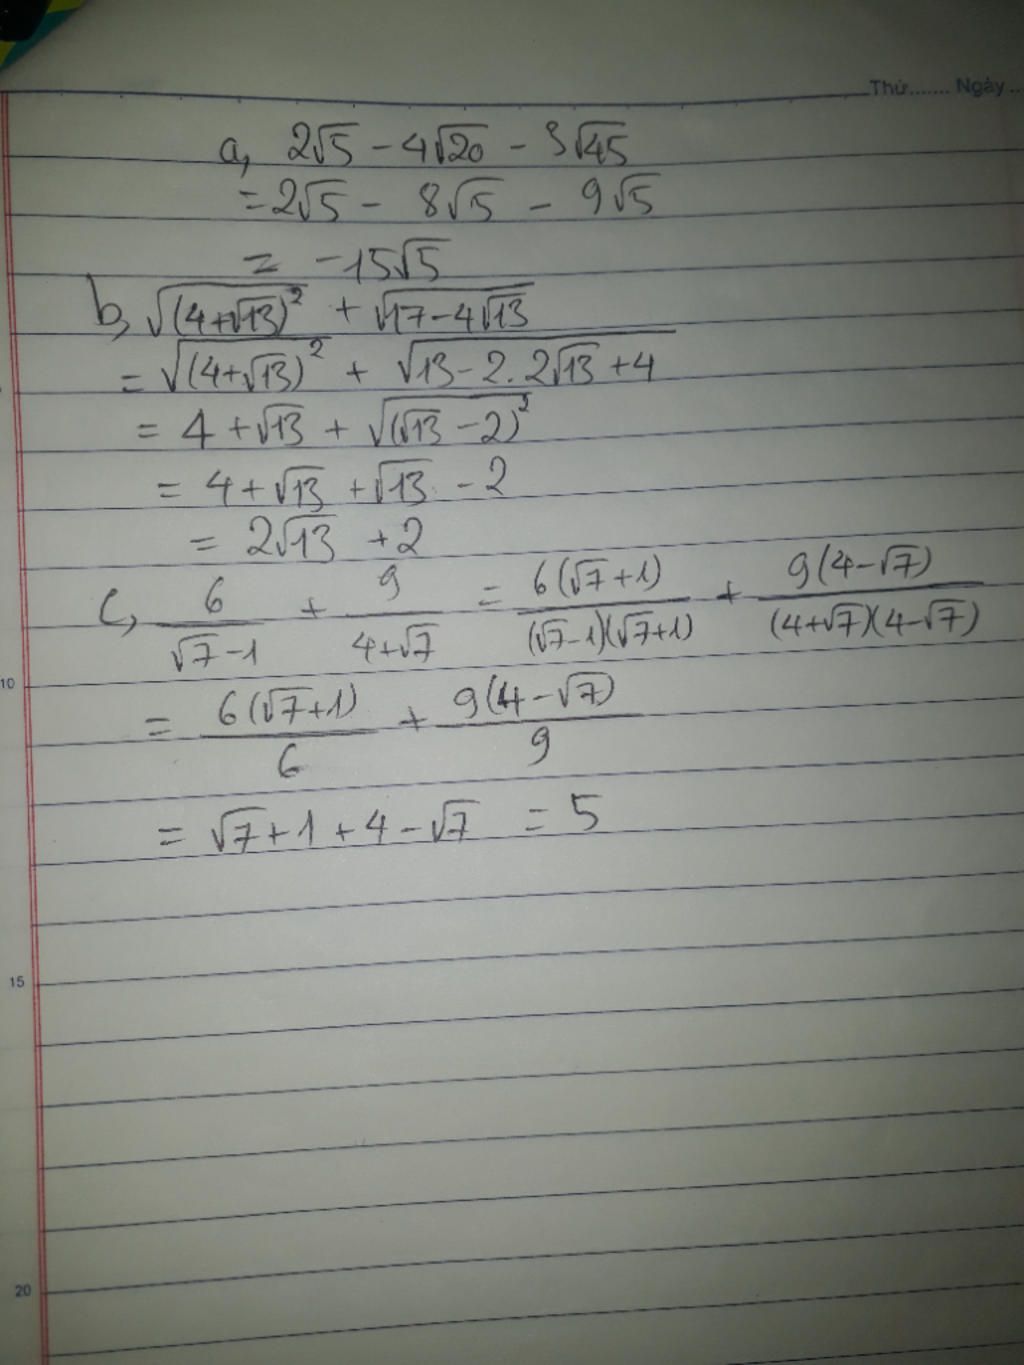 Thứ....... Ngày..
a, 2√5 - 4√20 - 3√45
= 2√5 - 8√5 - 9√5
= -15√5
b, √(4+√13)² + √17-4√13
= √(4+√13)² + √13-2.2√13+4
= 4+√13 + √(√13-2)²
= 4+√13 +√13 - 2
= 2√13 +2
c, 6/(√7-1) + 9/(4+√7) = 6(√7+1)/(√7-1)(√7+1) + 9(4-√7)/(4+√7)(4-√7)
= 6(√7+1)/6 + 9(4-√7)/9
= √7+1+4-√7 = 5
10
15
20